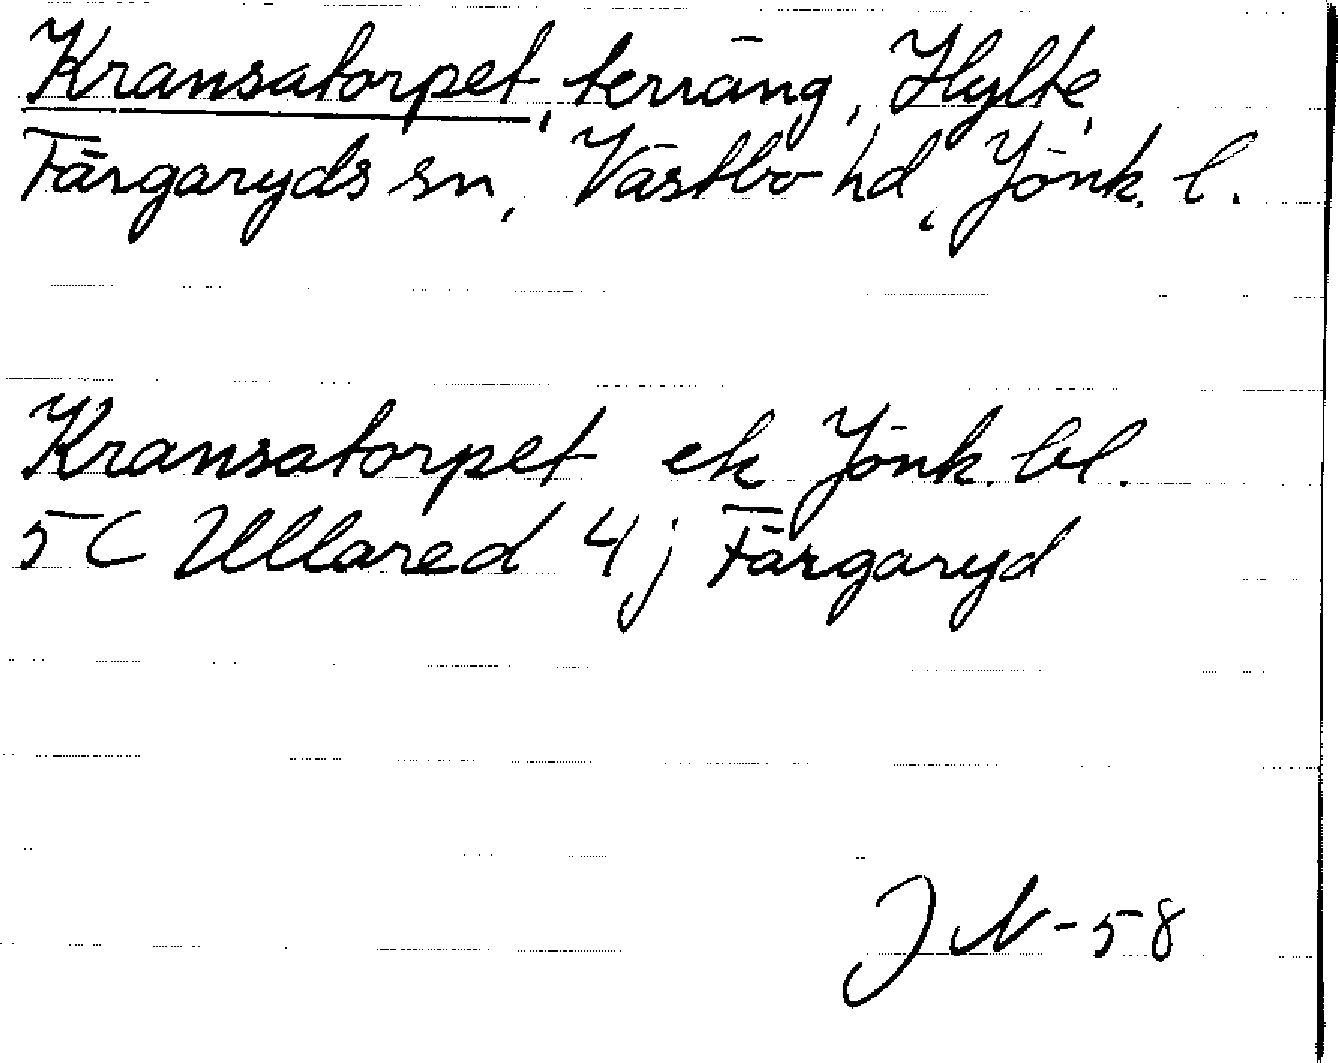 Kransatorpet, terräng, Hylte,
Färgaryds sn, Västbo hd, Jönk. l.
Kransatorpet ek Jönk. bl.
5C Ullared 4j Färgaryd
JN-58